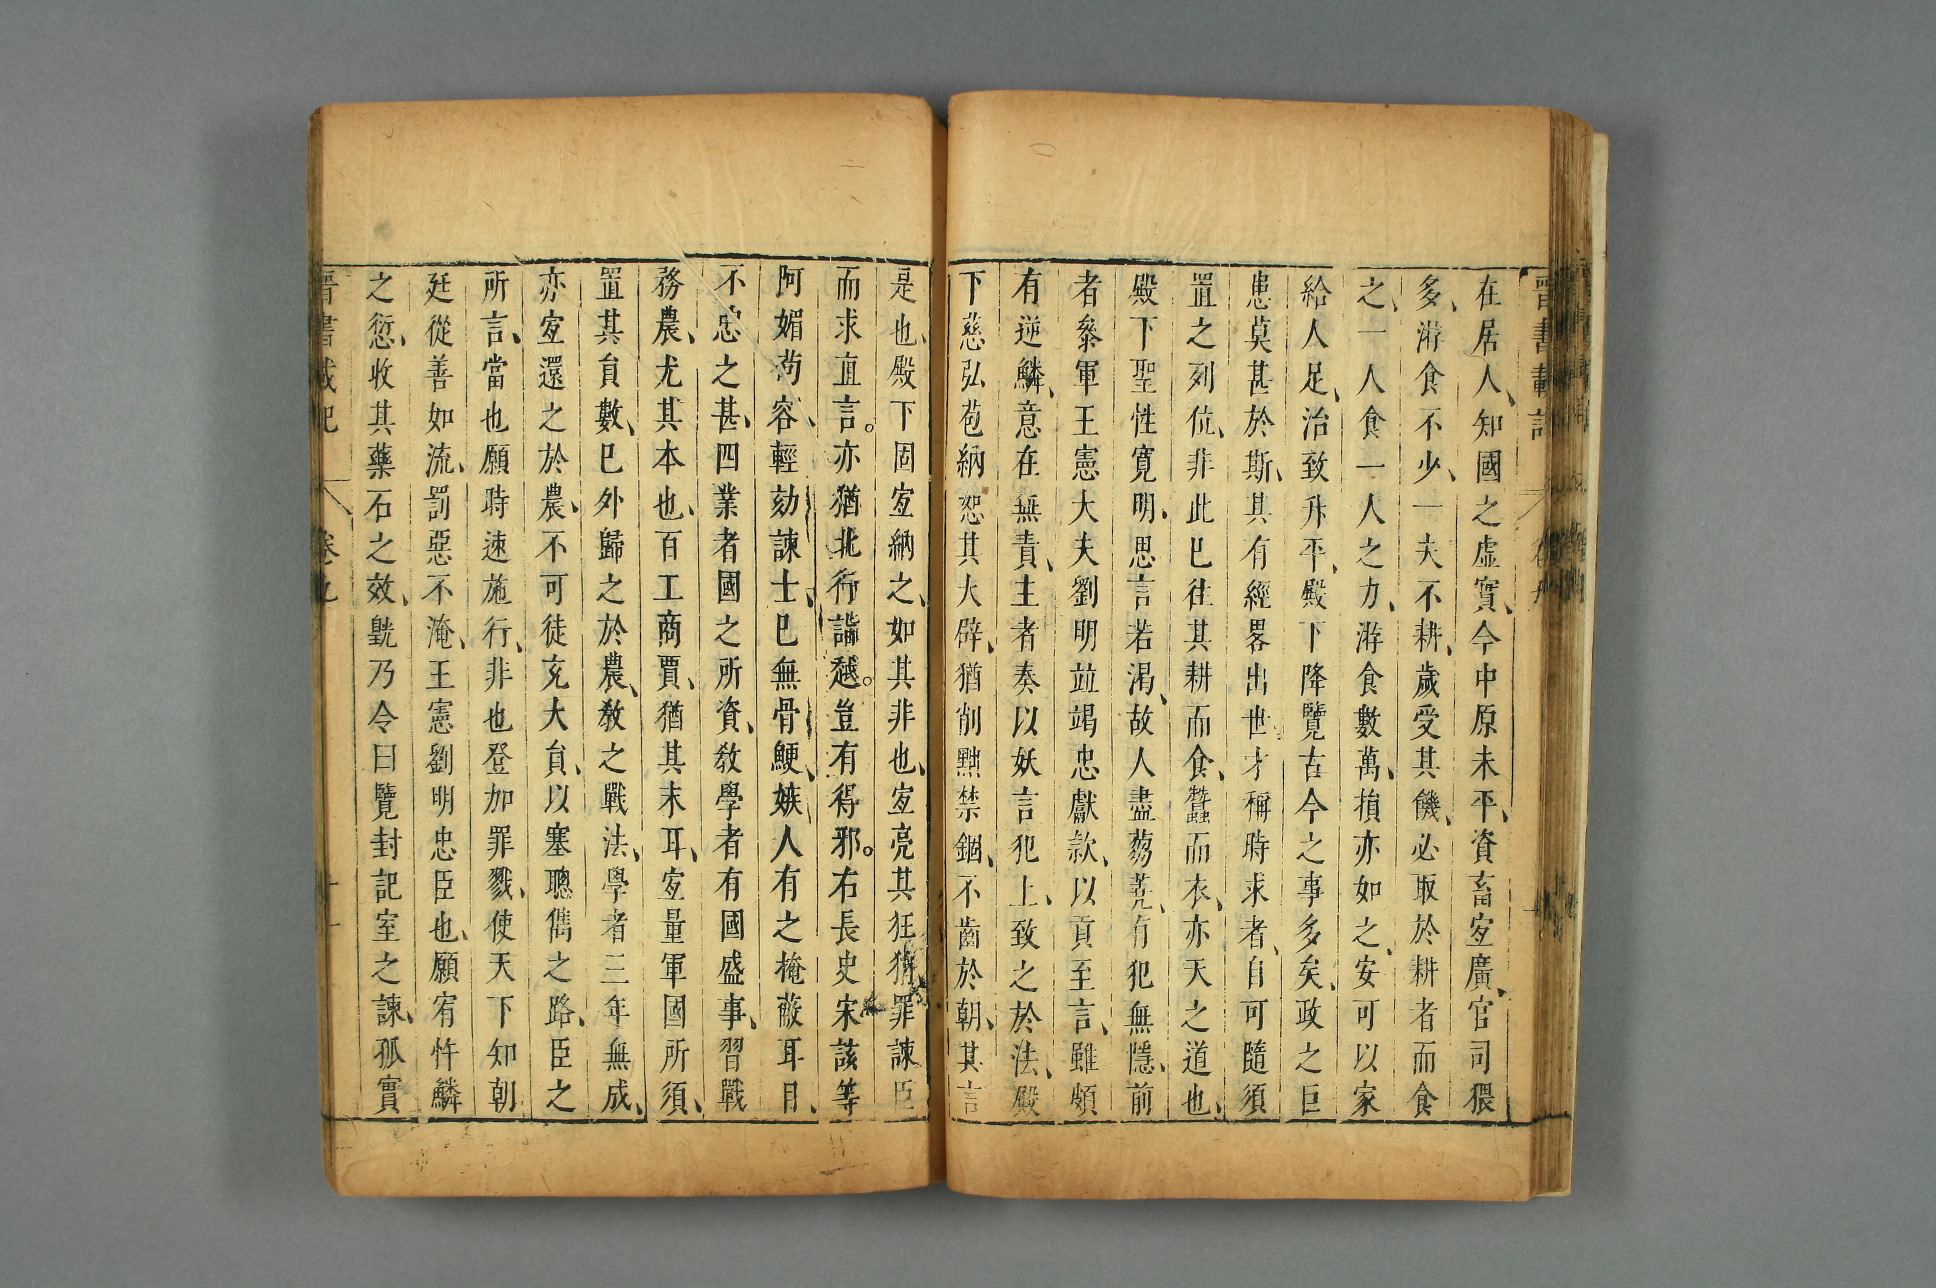 晉書載記
在居人知國之虛實今中原未平資畜宐廣官司猥
多游食不少一夫不耕歲受其饑必取於耕者而食
之一人食一人之力游食數萬損亦如之安可以家
給人足治致升平殿下降覽古今之事多矣政之巨
患莫甚於斯其有經畧出世才稱時求者自可隨須
置之列位非此巳往其耕而食蠶而衣亦天之道也
殿下聖性寬明思言若渴故人盡蒭蕘有犯無隱前
者叅軍王憲大夫劉明並竭忠獻款以貢至言雖頗
有逆鱗意在無責主者奏以妖言犯上致之於法殿
下慈弘苞納恕其大辟猶削黜禁錮不齒於朝其言
是也殿下固宐納之如其非也宐亮其狂狷罪諫臣
而求直言亦猶北行詣越豈有得邪右長史宋該等
阿媚茍容輕劾諫士巳無骨鯁嫉人有之掩蔽耳目
不忠之甚四業者國之所資敎學者有國盛事習戰
務農尤其本也百工商賈猶其末耳宐量軍國所須
置其員數巳外歸之於農敎之戰法學者三年無成
亦宐還之於農不可徒充大員以塞聰儁之路臣之
所言當也願時速施行非也登加罪戮使天下知朝
廷從善如流罰惡不淹王憲劉明忠臣也願宥忤鱗
之愆收其藥石之效皝乃令曰覽封記室之諫孤實
晉書載記
卷九